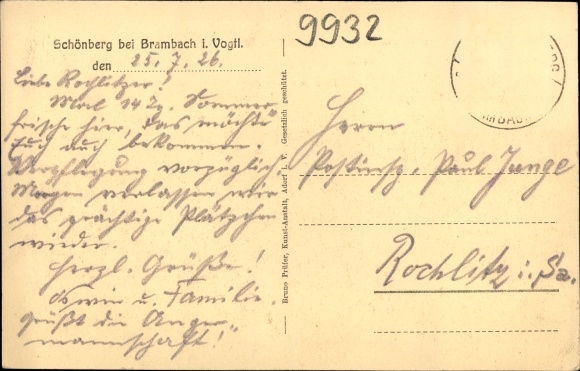 9932
Schönberg bei Brambach i. Vogtl.
den 25. 7. 26.
Liebe Rochlitzer!
Mal 14 Tg. Sommer-
frische hier, das möchte
Euch auch bekommen.
Verpflegung vorzüglich.
Morgen verlassen wir
das prächtige Plätzchen
wieder.
Herzl. Grüße!
Oswin u. Familie.
Grüßt die Anger-
mannschaft!
Bruno Prüfer, Kunst-Anstalt, Adorf i. V. Gesetzlich geschützt.
Herrn
Postinsp. Paul Junge
Rochlitz i. Sa.